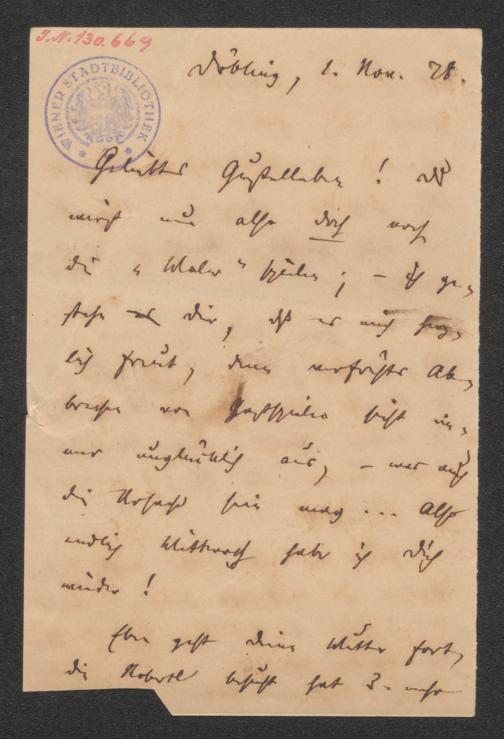 J.N. 130.669
WIENER STADTBIBLIOTHEK
Döbling, 1. Nov. 78.
Geliebtes Gustelleben! du
wirst nun also doch noch
die "Waler" spielen; – ich ge-
stehe es dir, daß es mich herz-
lich freut, denn verfrühtes Ab-
brechen von Gastspielen sieht im-
mer unglücklich aus, – was auch
die Ursache sein mag ... Also
endlich Mittwoch habe ich Dich
wieder!
Eben geht deine Mutter fort,
die Robert besucht hat &